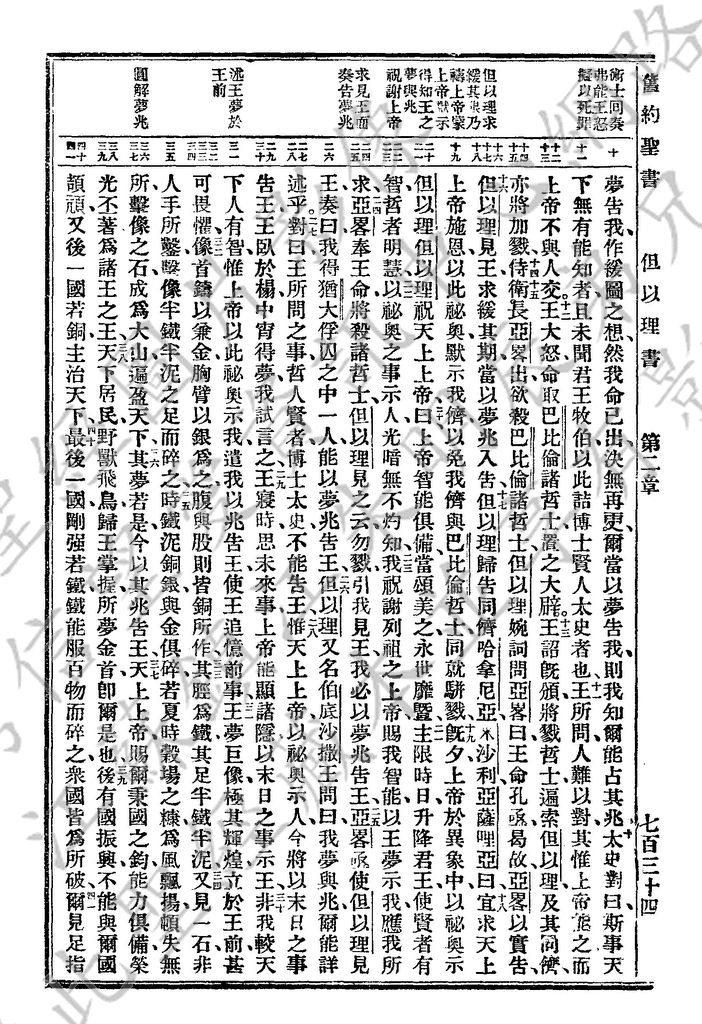 舊約聖書 但以理書 第二章 七百三十四
術士同奏
弗能王怒
擬以死罪
但以理求
緩其期乃
禱上帝蒙
上帝默示
得知王之
夢與兆
祝謝上帝
求見王而
奏告夢兆
述王夢於
王前
圓解夢兆
夢告我、作緩圖之想、然我命已出、決無再更、爾當以夢告我、則我知爾能占其兆、太史對曰、斯事天
下無有能知者、且未聞君王牧伯、以此詰博士賢人太史者也、王所問人難以對、其惟上帝能之、而
上帝不與人交、王大怒、命取巴比倫諸哲士、置之大辟、王詔旣頒、將戮哲士、遍索但以理、及其同儕、
亦將加戮、侍衛長亞畧、出欲殺巴比倫諸哲士、但以理婉詞問亞畧曰、王命孔亟曷故、亞畧以實告、
但以理見王、求緩其期、當以夢兆入告、但以理歸告同儕哈拿尼亞、米沙利、亞薩哩亞、曰、宜求天上
上帝施恩、以此祕奧、默示我儕、以免我儕與巴比倫哲士同就駢戮、旣夕、上帝於異象中、以祕奧示
但以理、但以理祝天上上帝曰、上帝智能俱備、當頌美之、永世靡曁、主限時日、升降君王、使賢者有
智、哲者明慧、以祕奧之事示人、光暗無不灼知、我祝謝列祖之上帝、賜我智能、以王夢示我、應我所
求、亞畧奉王命、將殺諸哲士、但以理見之、云、勿戮、引我見王、我必以夢兆告王、亞畧亟使但以理見
王、奏曰、我得猶大俘囚之中一人、能以夢兆告王、但以理又名伯底沙撒、王問曰、我夢與兆、爾能詳
述乎、對曰、王所問之事、哲人賢者博士太史不能告王、惟天上上帝以祕奧示人、今將以末日之事
告王、王臥於榻、中宵得夢、我試言之、王寢時思未來事、上帝能顯諸隱、以末日之事示王、非我較天
下人有智、惟上帝以此祕奧示我、遣我以兆告王、使王追憶前事、王夢巨像、極其輝煌、立於王前、甚
可畏懼、像首鑄以兼金、胸臂以銀爲之、腹與股則皆銅所作、其脛爲鐵、其足半鐵半泥、又見一石非
人手所鑿、擊像半鐵半泥之足而碎之、時鐵泥銅銀與金俱碎、若夏時穀場之糠、爲風飄揚、頓失無
所、擊像之石成爲大山、遍盈天下、其夢若是、今以其兆告王、天上上帝賜爾秉國之鈞、能力俱備、榮
光丕著、爲諸王之王、天下居民、野獸飛鳥、歸王掌握、所夢金首、卽爾是也、後有國振興、不能與爾國
頡頏、又後一國若銅、主治天下、最後一國、剛强若鐵、鐵能服百物而碎之、衆國皆爲所破、爾見足指